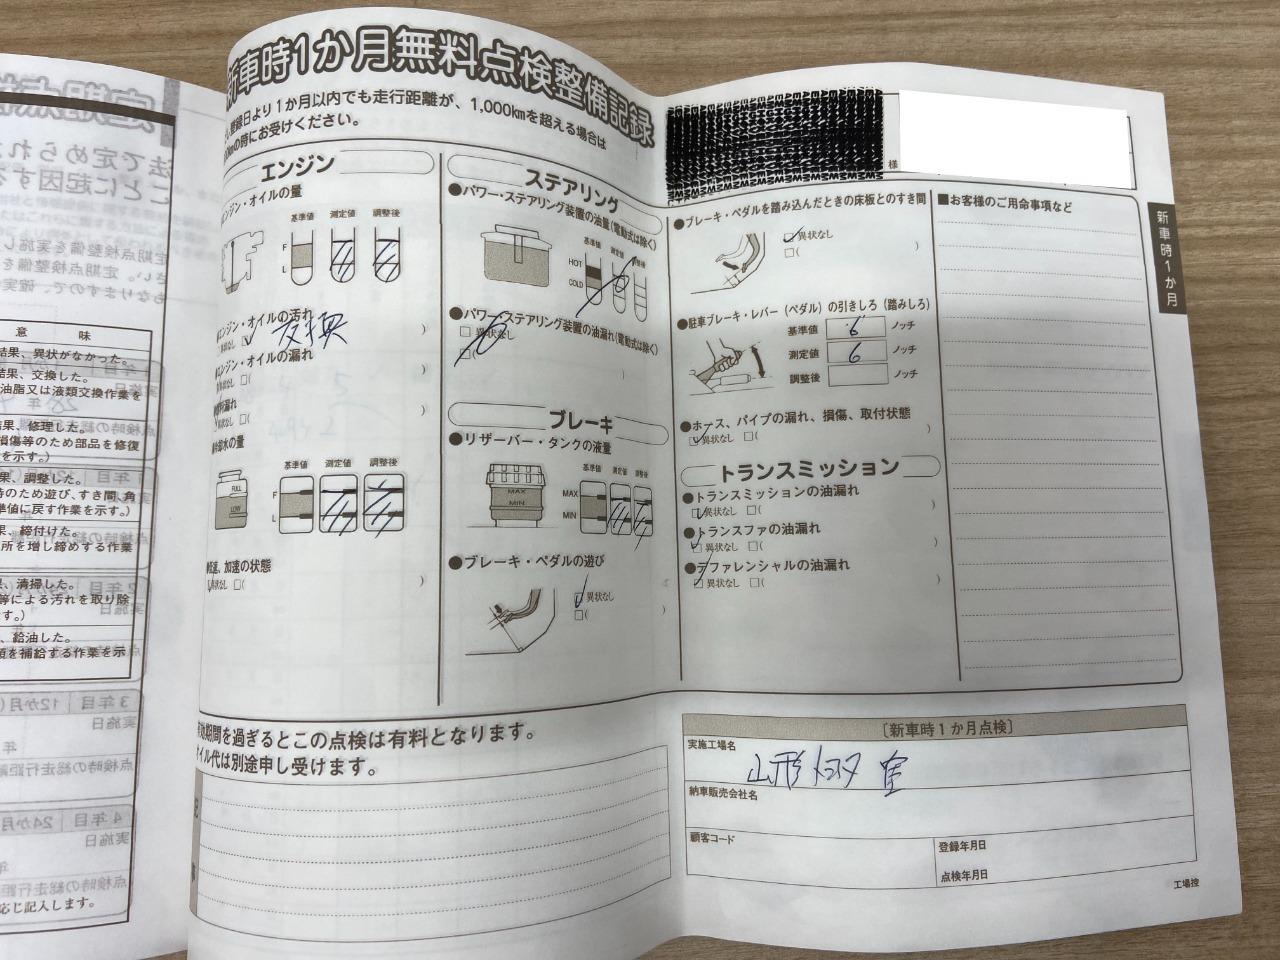 新車時1か月無料点検整備記録
登録日より1か月以内でも走行距離が、1,000kmを超える場合は
の時にお受けください。
様
エンジン
エンジン・オイルの量
基準値 測定値 調整後
F
L
エンジン・オイルの汚れ
異状なし 交換
エンジン・オイルの漏れ
異状なし □( )
漏れ
異状なし □( )
冷却水の量
基準値 測定値 調整後
FULL
LOW
F
L
加速の状態
異状なし □( )
ステアリング
●パワー・ステアリング装置の油量(電動式は除く)
基準値 測定値 調整後
HOT
COLD
●パワー・ステアリング装置の油漏れ(電動式は除く)
□ 異状なし
□( )
ブレーキ
●リザーバー・タンクの液量
基準値 測定値 調整後
MAX
MIN
MAX
MIN
●ブレーキ・ペダルの遊び
異状なし
□( )
●ブレーキ・ペダルを踏み込んだときの床板とのすき間
異状なし
□( )
●駐車ブレーキ・レバー(ペダル)の引きしろ(踏みしろ)
基準値 6 ノッチ
測定値 6 ノッチ
調整後 ノッチ
●ホース、パイプの漏れ、損傷、取付状態
異状なし □( )
トランスミッション
●トランスミッションの油漏れ
異状なし □( )
●トランスファの油漏れ
異状なし □( )
●デファレンシャルの油漏れ
異状なし □( )
■お客様のご用命事項など
新車時1か月
有効期間を過ぎるとこの点検は有料となります。
オイル代は別途申し受けます。
〔新車時1か月点検〕
実施工場名
山形トヨタ
納車販売会社名
顧客コード
登録年月日
点検年月日
工場控
法で定められ
ことに起因する
定期点検整備を実施し
さい。定期点検整備を
もなりますので、確実
意 味
結果、異状がなかった。
結果、交換した。
油脂又は液類交換作業を
結果、修理した。
損傷等のため部品を修復
を示す。)
果、調整した。
時のため遊び、すき間、角
準値に戻す作業を示す。)
果、締付けた。
所を増し締めする作業
果、清掃した。
等による汚れを取り除
す。)
、給油した。
類を補給する作業を示
応じ記入します。